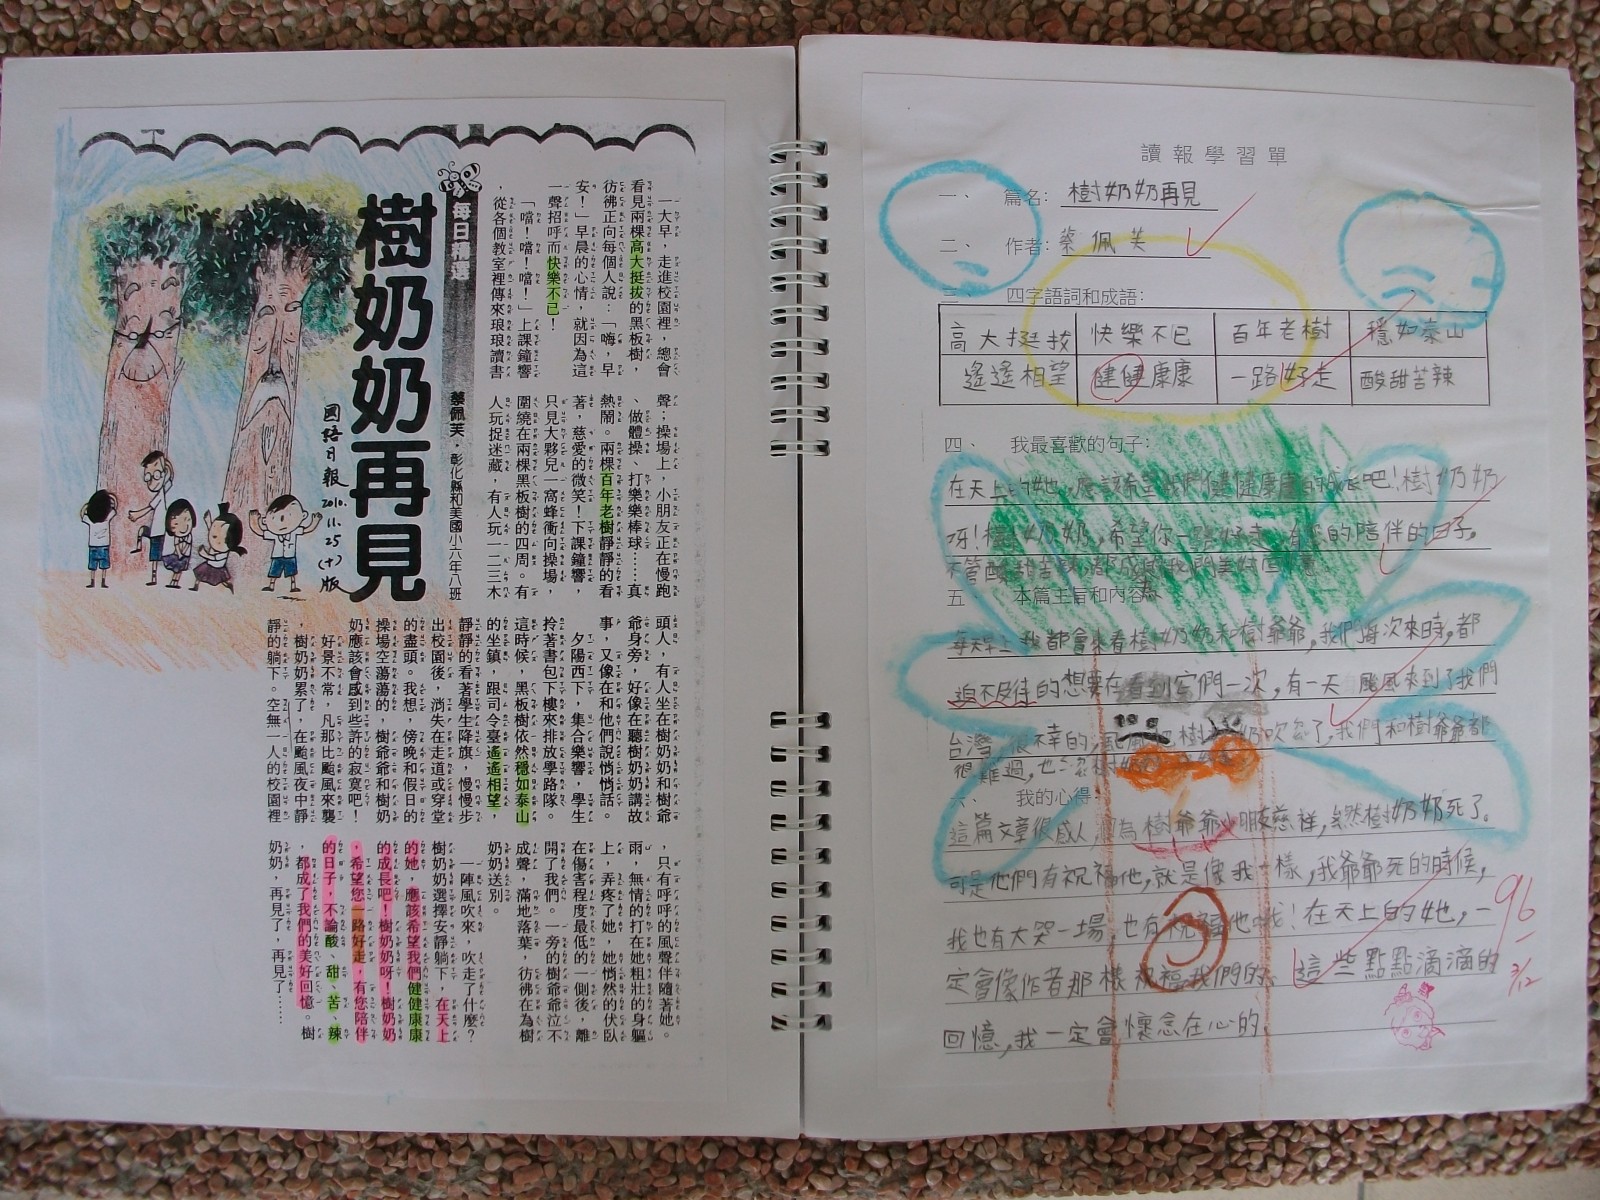 每日精選
樹奶奶再見
蔡佩芙・彰化縣和美國小六年八班
國語日報
2010.
11.25
(十)版
一大早，走進校園裡，總會
看見兩棵高大挺拔的黑板樹，
彷彿正向每個人說：「嗨，早
安！」早晨的心情，就因為這
一聲招呼而快樂不已！
「噹！噹！噹！」上課鐘響
，從各個教室裡傳來琅琅讀書
聲；操場上，小朋友正在慢跑
、做體操、打樂樂棒球……真
熱鬧。兩棵百年老樹靜靜的看
著，慈愛的微笑！下課鐘響，
只見大夥兒一窩蜂衝向操場，
圍繞在兩棵黑板樹的四周。有
人玩捉迷藏，有人玩一二三木
頭人，有人坐在樹奶奶和樹爺
爺身旁，好像在聽樹奶奶講故
事，又像在和他們說悄悄話。
夕陽西下，集合樂響，學生
拎著書包下樓來排放學路隊。
這時候，黑板樹依然穩如泰山
的坐鎮，跟司令臺遙遙相望，
靜靜的看著學生降旗，慢慢步
出校園後，消失在走道或穿堂
的盡頭。我想，傍晚和假日的
操場空蕩蕩的，樹爺爺和樹奶
奶應該會感到些許的寂寞吧！
好景不常，凡那比颱風來襲
，樹奶奶累了，在颱風夜中靜
靜的躺下。空無一人的校園裡
，只有呼呼的風聲伴隨著她。
雨，無情的打在她粗壯的身軀
上，弄疼了她，她悄然的伏臥
在傷害程度最低的一側後，離
開了我們。一旁的樹爺爺泣不
成聲，滿地落葉，彷彿在為樹
奶奶送別。
一陣風吹來，吹走了什麼？
樹奶奶選擇安靜躺下，在天上
的她，應該希望我們健健康康
的成長吧！樹奶奶呀！樹奶奶
，希望您一路好走，有您陪伴
的日子，不論酸、甜、苦、辣
，都成了我們的美好回憶。樹
奶奶，再見了，再見了……
讀報學習單
一、 篇名：樹奶奶再見
二、 作者：蔡佩芙
三、 四字語詞和成語：
高大挺拔 快樂不已 百年老樹 穩如泰山
遙遙相望 健健康康 一路好走 酸甜苦辣
四、 我最喜歡的句子：
在天上的她，應該希望我們健健康康的成長吧！樹奶奶
呀！樹奶奶，希望你一路好走，有您的陪伴的日子，
不管酸甜苦辣，都成了我們美好回憶
五 本篇主旨和內容
每天早上我都會來看樹奶奶和樹爺爺，我們每次來時，都
迫不及待的想要在看到它們一次，有一天颱風來到了我們
台灣，很不幸的，颱風把樹奶奶吹倒了，我們和樹爺爺都
很難過，也
六、 我的心得：
這篇文章很感人，因為樹爺爺小朋友慈祥，雖然樹奶奶死了。
可是他們有祝福他，就是像我一樣，我爺爺死的時候，
我也有大哭一場，也有祝福他哦！在天上的她，一
定會像作者那樣祝福我們的，這些點點滴滴的
回憶，我一定會懷念在心的。
96
3/12